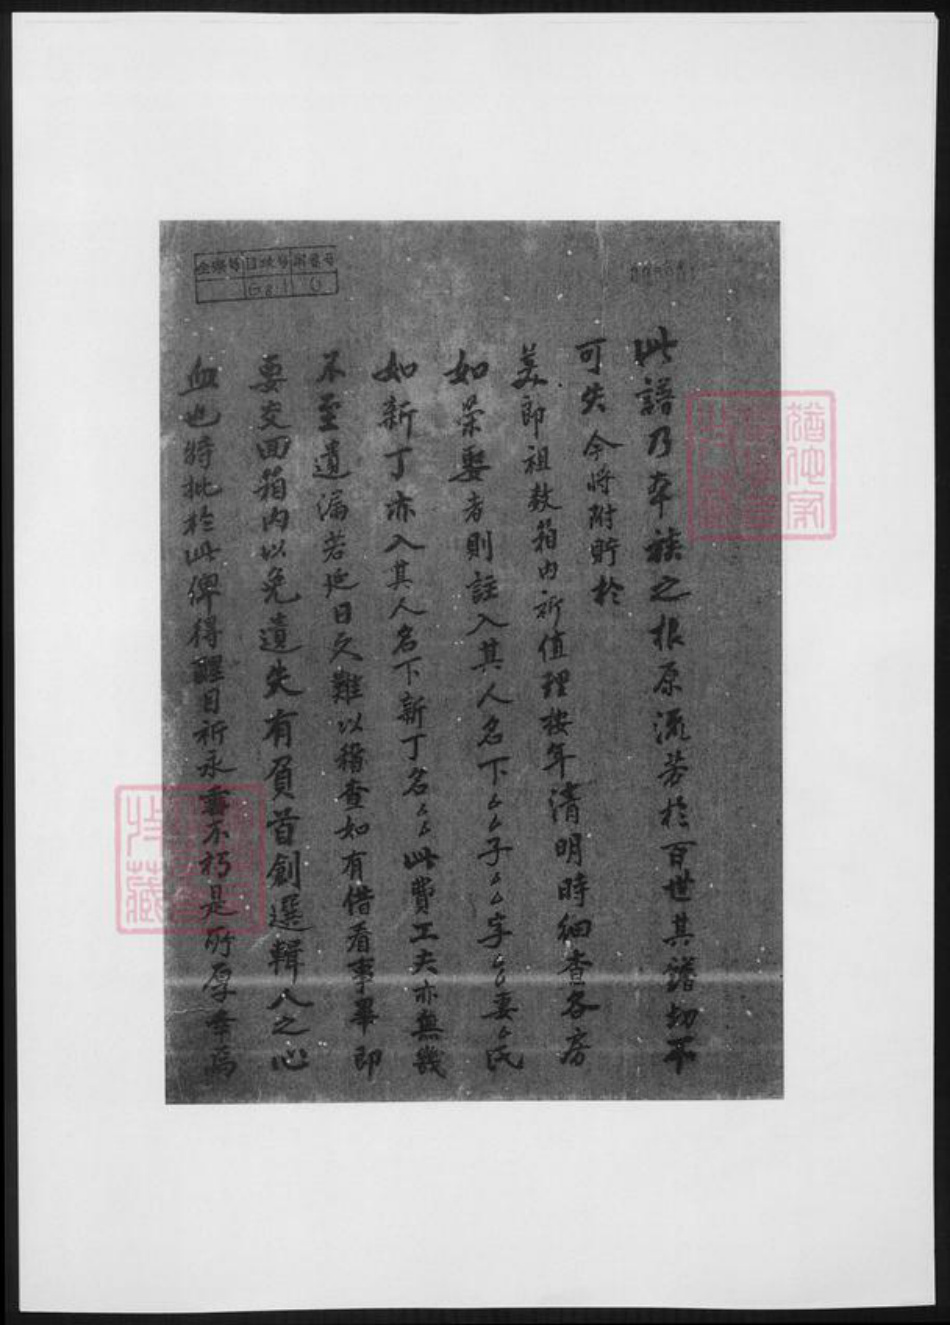 此譜乃本族之根原流芳於百世其譜切不
可失今將附貯於
美郎祖數箱內祈值理按年清明時細查各房
如榮娶者則註入其人名下厶厶子厶厶字厶厶妻厶氏
如新丁亦入其人名下新丁名厶厶此費工夫亦無幾
不至遺漏若延日久難以稽查如有借看事畢即
要交回箱內以免遺失有負首創選輯人之心
血也特批於此俾得醒目祈永垂不朽是所厚幸焉
全宗号 目录号 案卷号
G.8.1 6